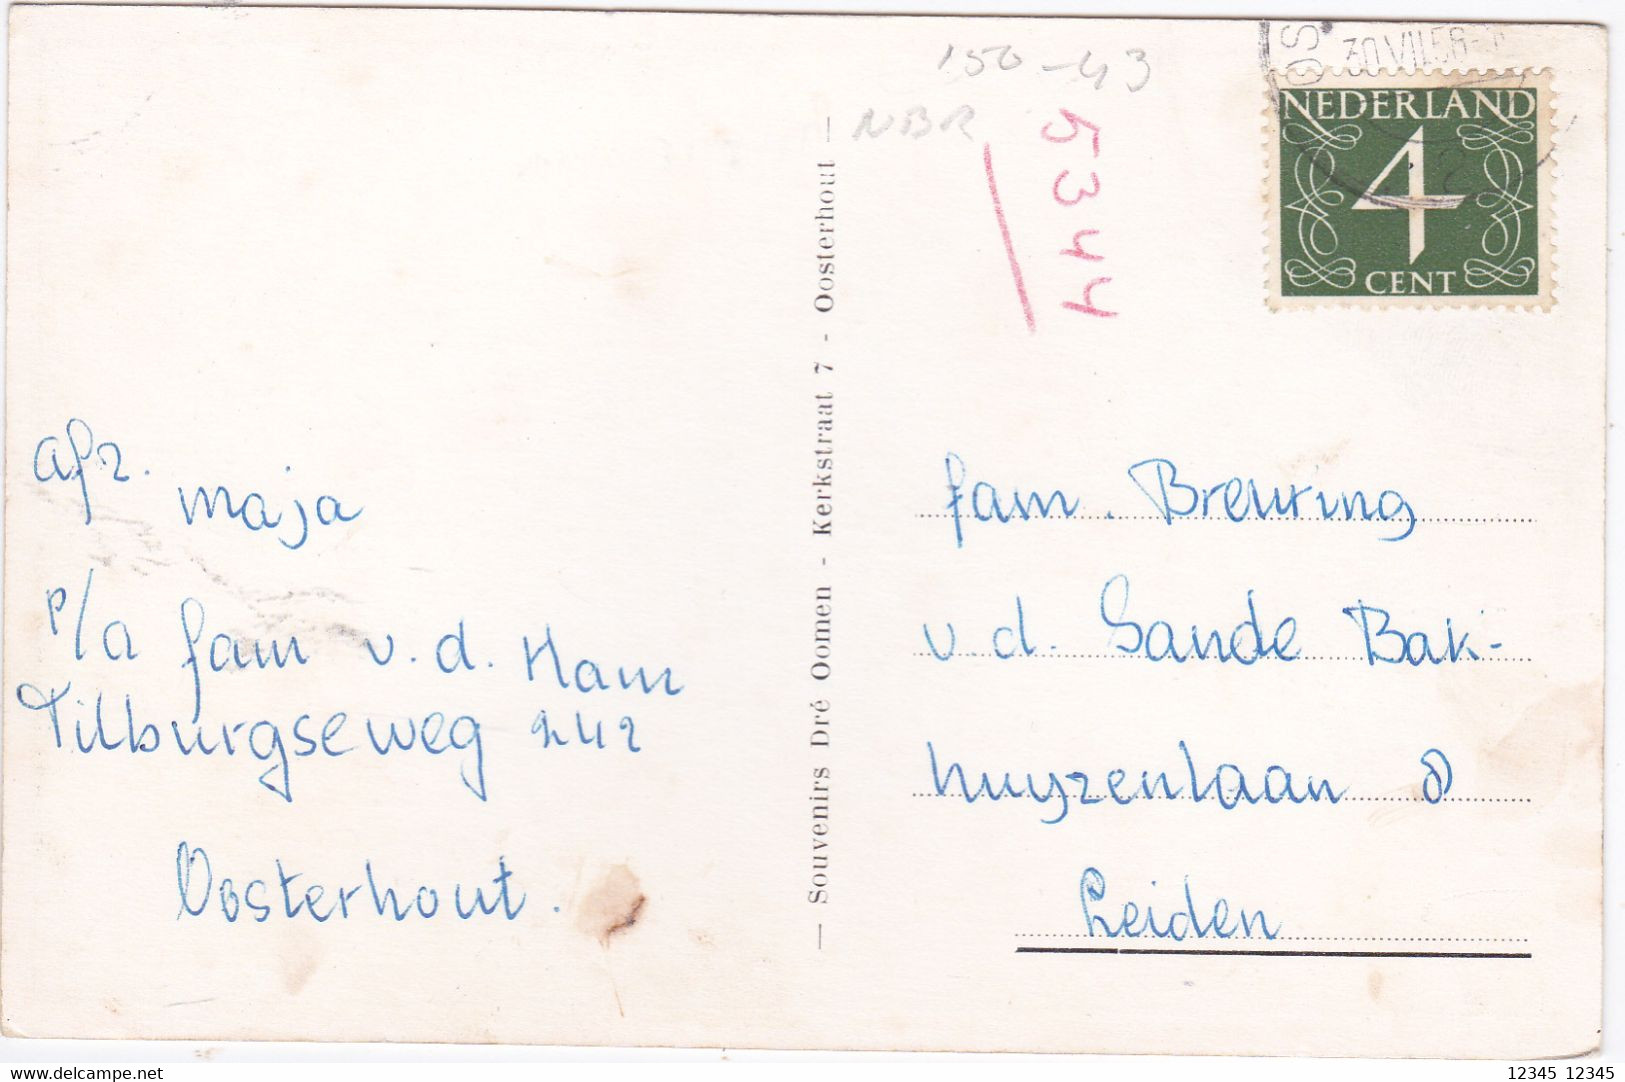 150-43
NBR
5344
OOS
30 VII 56
NEDERLAND
4
CENT
afz.
maja
p/a fam v.d. Ham
Tilburgseweg 242
Oosterhout.
— Souvenirs Dré Oomen - Kerkstraat 7 - Oosterhout —
fam. Breuring
v.d. Sande Bak-
huyzenlaan 8
Leiden
12345 12345
www.delcampe.net
tmc123